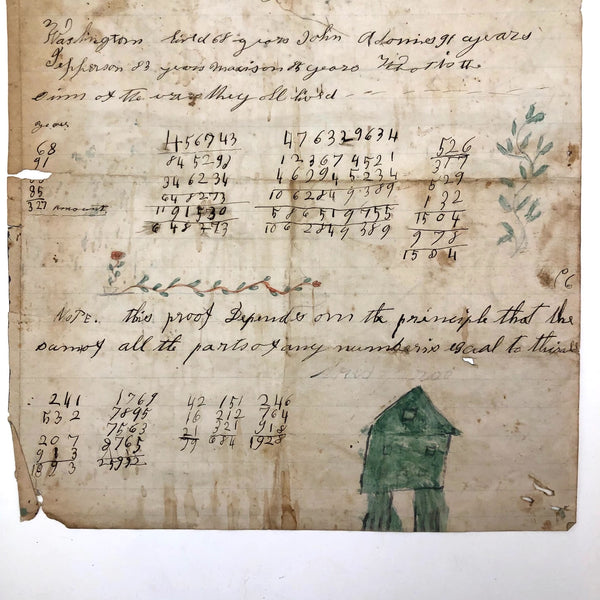 Washington lived 68 years John Adames 91 ayears
Jepherson 83 years Maaison 85 years What is the
sum of the years they all lived
years
68
91
85
327 amount
456743
845293
346234
648273
1191530
648273
476329634
123674521
462945234
1062849389
586519755
1062849389
526
317
529
132
1504
978
1584
NoTE. this proof Depends om the principle that the
sum of all the parts of any number is eqal to the
241
532
207
913
1893
1769
7895
7563
8765
25992
42 151 246
16 212 764
21 321 918
79 684 1928